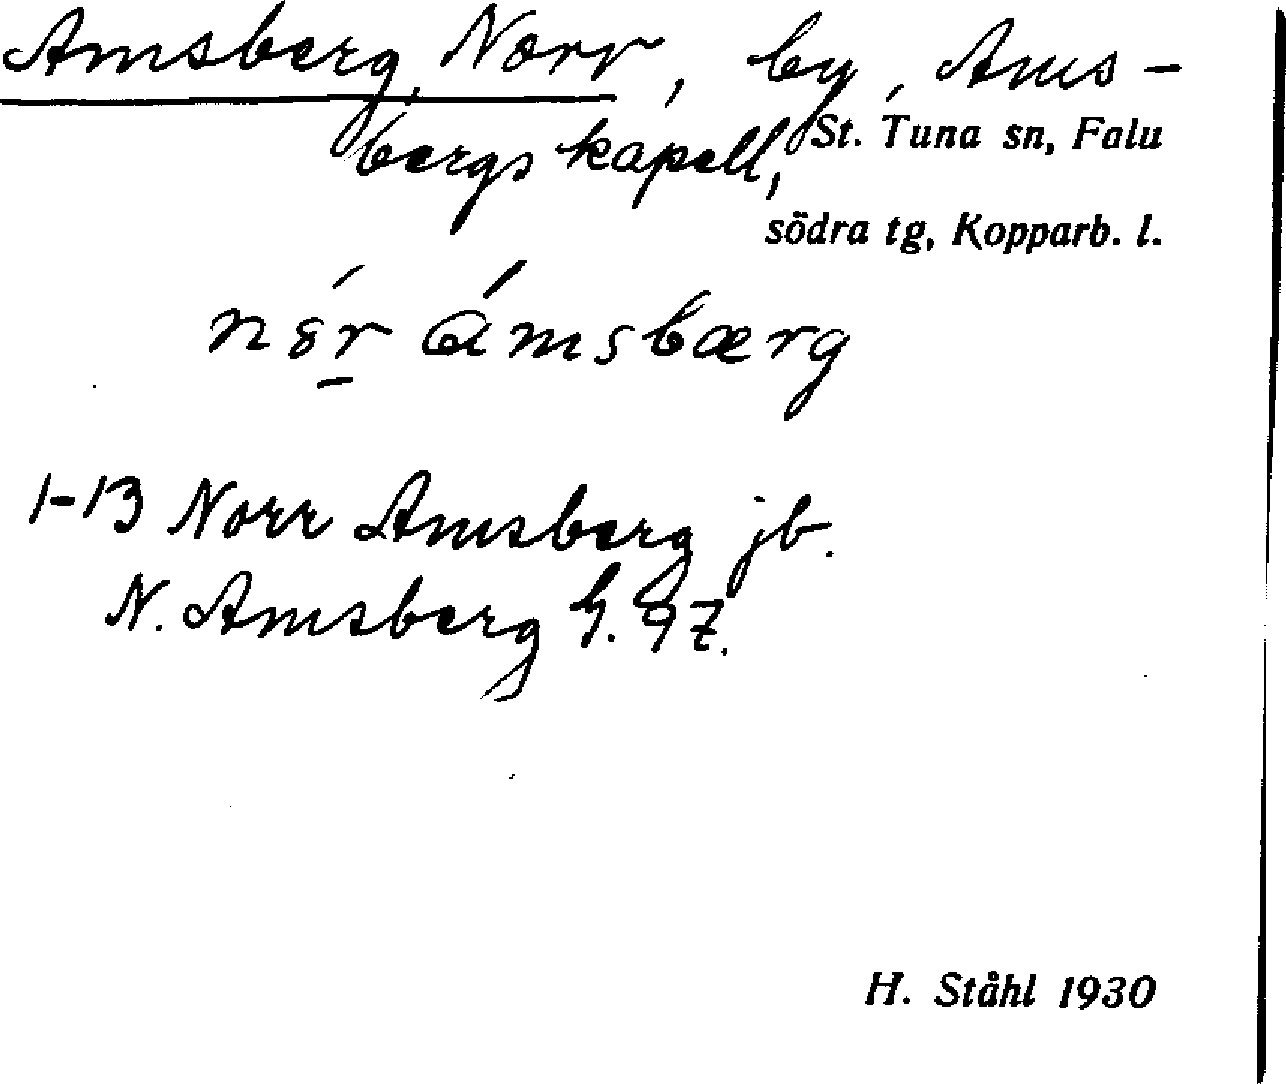 Amsberg, Norr, by, Ams-
bergs kapell,
St. Tuna sn, Falu
södra tg, Kopparb. l.
nǿr ámsbærg
1-13 Norr Amsberg jb.
N. Amsberg G. 97.
H. Ståhl 1930